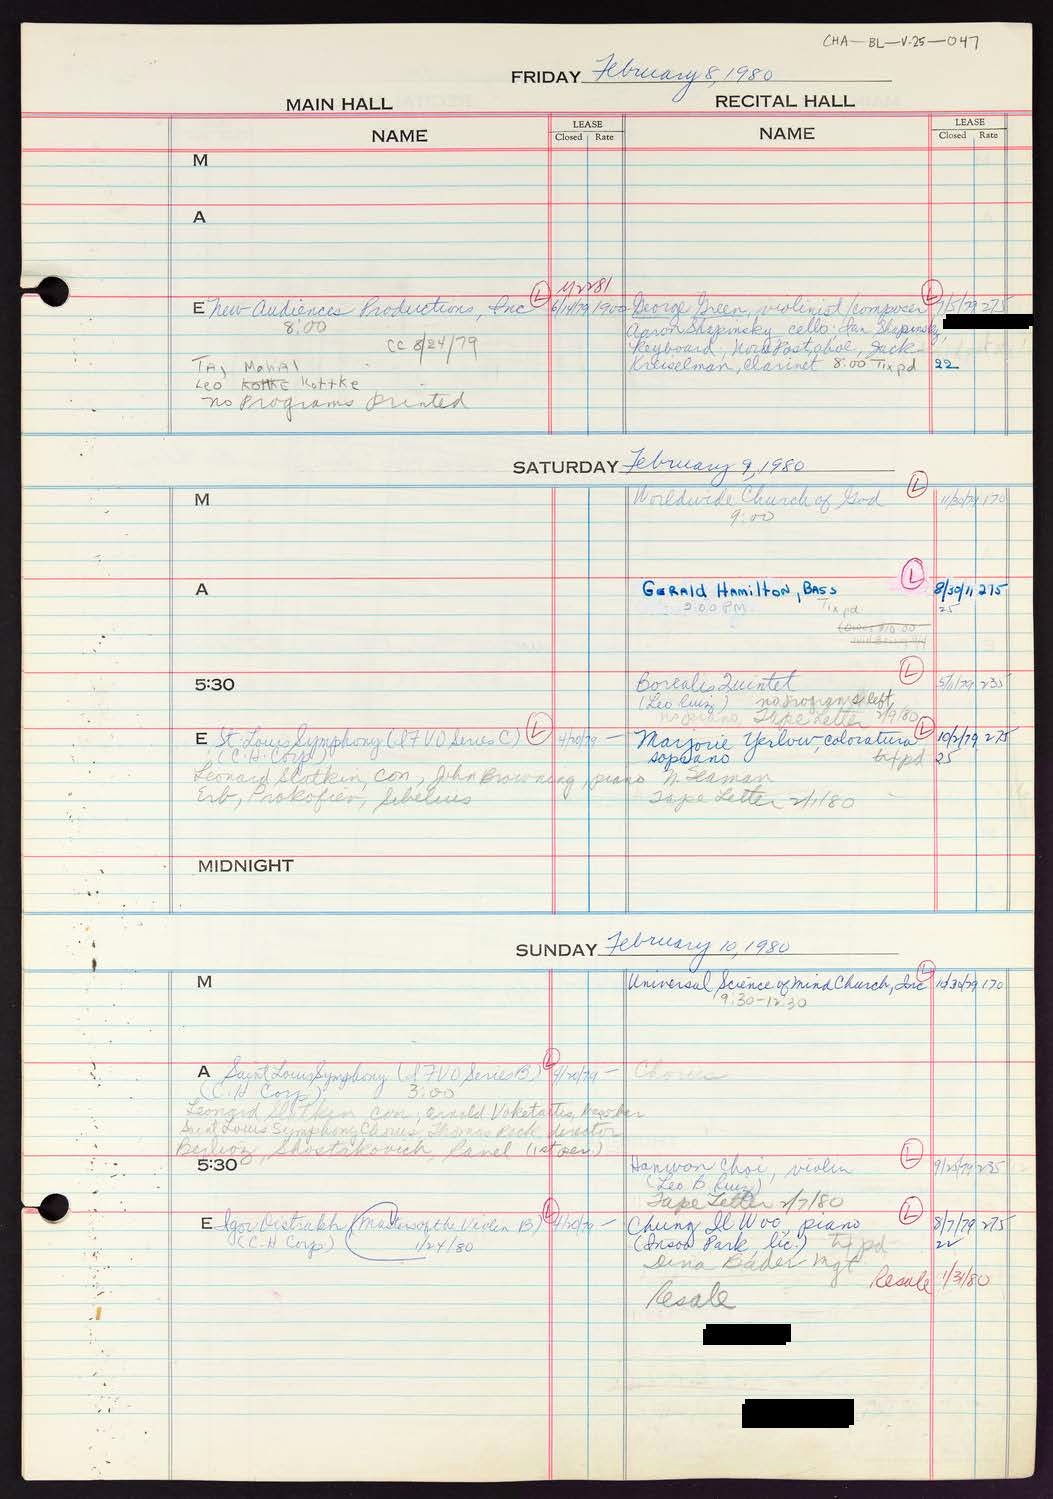 CHA-BL-V-25-047
FRIDAY February 8, 1980
MAIN HALL RECITAL HALL
NAME LEASE Closed Rate NAME LEASE Closed Rate
M
A
M2281
E New Audiences Productions, Inc L 6/14/79 1900 George Green, violinist/composer L 7/5/79 275
8:00 Aaron Shapinsky cello. Ian Shapinsky,
CC 8/24/79 keyboard, Nora Post, oboe, Jack
TAj Mahal Kreiselman, clarinet 8:00 Tix pd 22
Leo Kottke Kottke
no Programs printed
SATURDAY February 9, 1980
M Worldwide Church of God L 11/30/79 170
9:00
A GERAld HAmiltoN, BASS L 8/30/11 275
2:00 PM Tix pd 25
5:30 Borealis Quintet L 5/11/79 235
(Leo Ruiz) no programs left,
no piano, Tape Letter 2/9/80
E St. Louis Symphony (I7VO Series C) L 4/20/79 — Marjorie Yerlow, coloratura L 10/2/79 275
(C.H. Corp) soprano tix pd 25
Leonard Slatkin, con, John Browning, piano N. Seaman
Erb, Prokofiev, Sibelius Tape Letter 2/1/80
MIDNIGHT
SUNDAY February 10, 1980
M Universal Science of Mind Church, Inc L 10/30/79 170
9:30-12:30
A Saint Louis Symphony (I7VO Series B) L 4/20/79 — Chorus
(C.H Corp) 3:00
Leonard Slatkin con, Arnold Voketaitis,
Saint Louis Symphony Chorus, Thomas Peck director
Berlioz, Shostakovich, Ravel (1st per.)
5:30 Hanwon Choi, violin L 9/20/79 235
(Leo B Ruiz)
Tape Letter 2/7/80
E Igor Oistrakh (Masters of the Violin B) L 4/20/79 — Chung Il Woo, piano L 8/7/79 275
(C.H Corp) 1/24/80 (Insook Park lic.) tix pd 22
Dina Bader Mgt
Resale 1/31/80
Resale